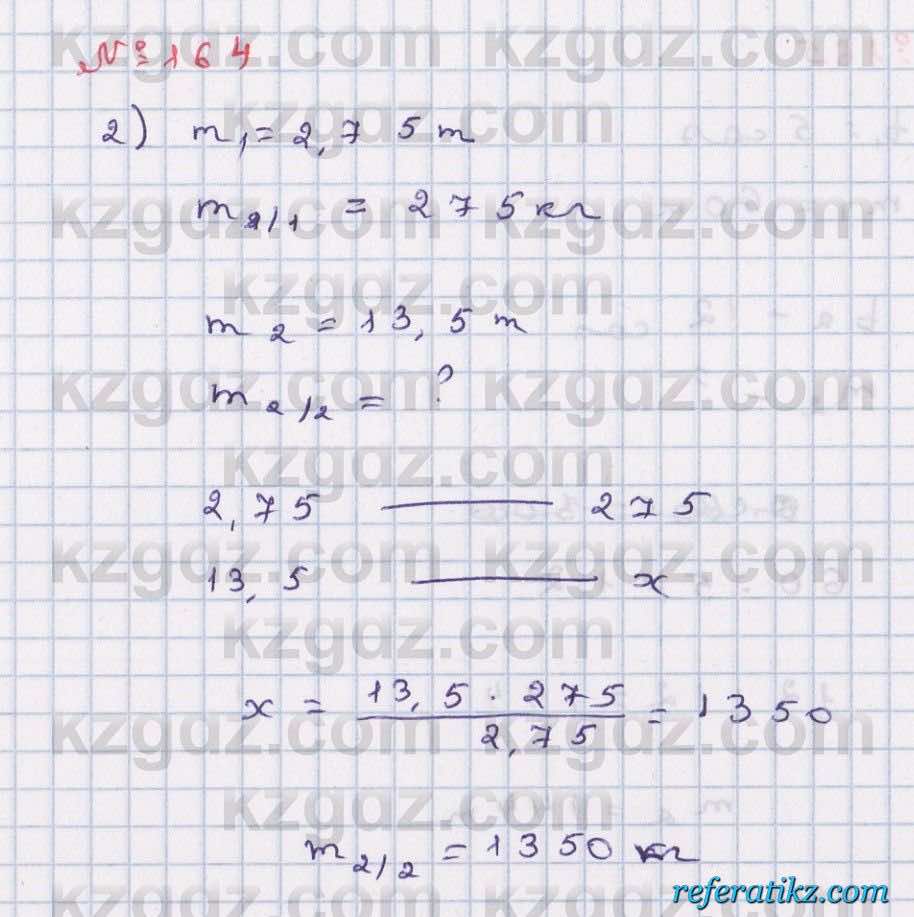 № 164
2) m₁ = 2,75 т
m₂/₁ = 275 кг
m₂ = 13,5 т
m₂/₂ = ?
2,75 —— 275
13,5 —— x
x = 13,5 · 275 / 2,75 = 1350
m₂/₂ = 1350 кг
kzgdz.com
referatikz.com